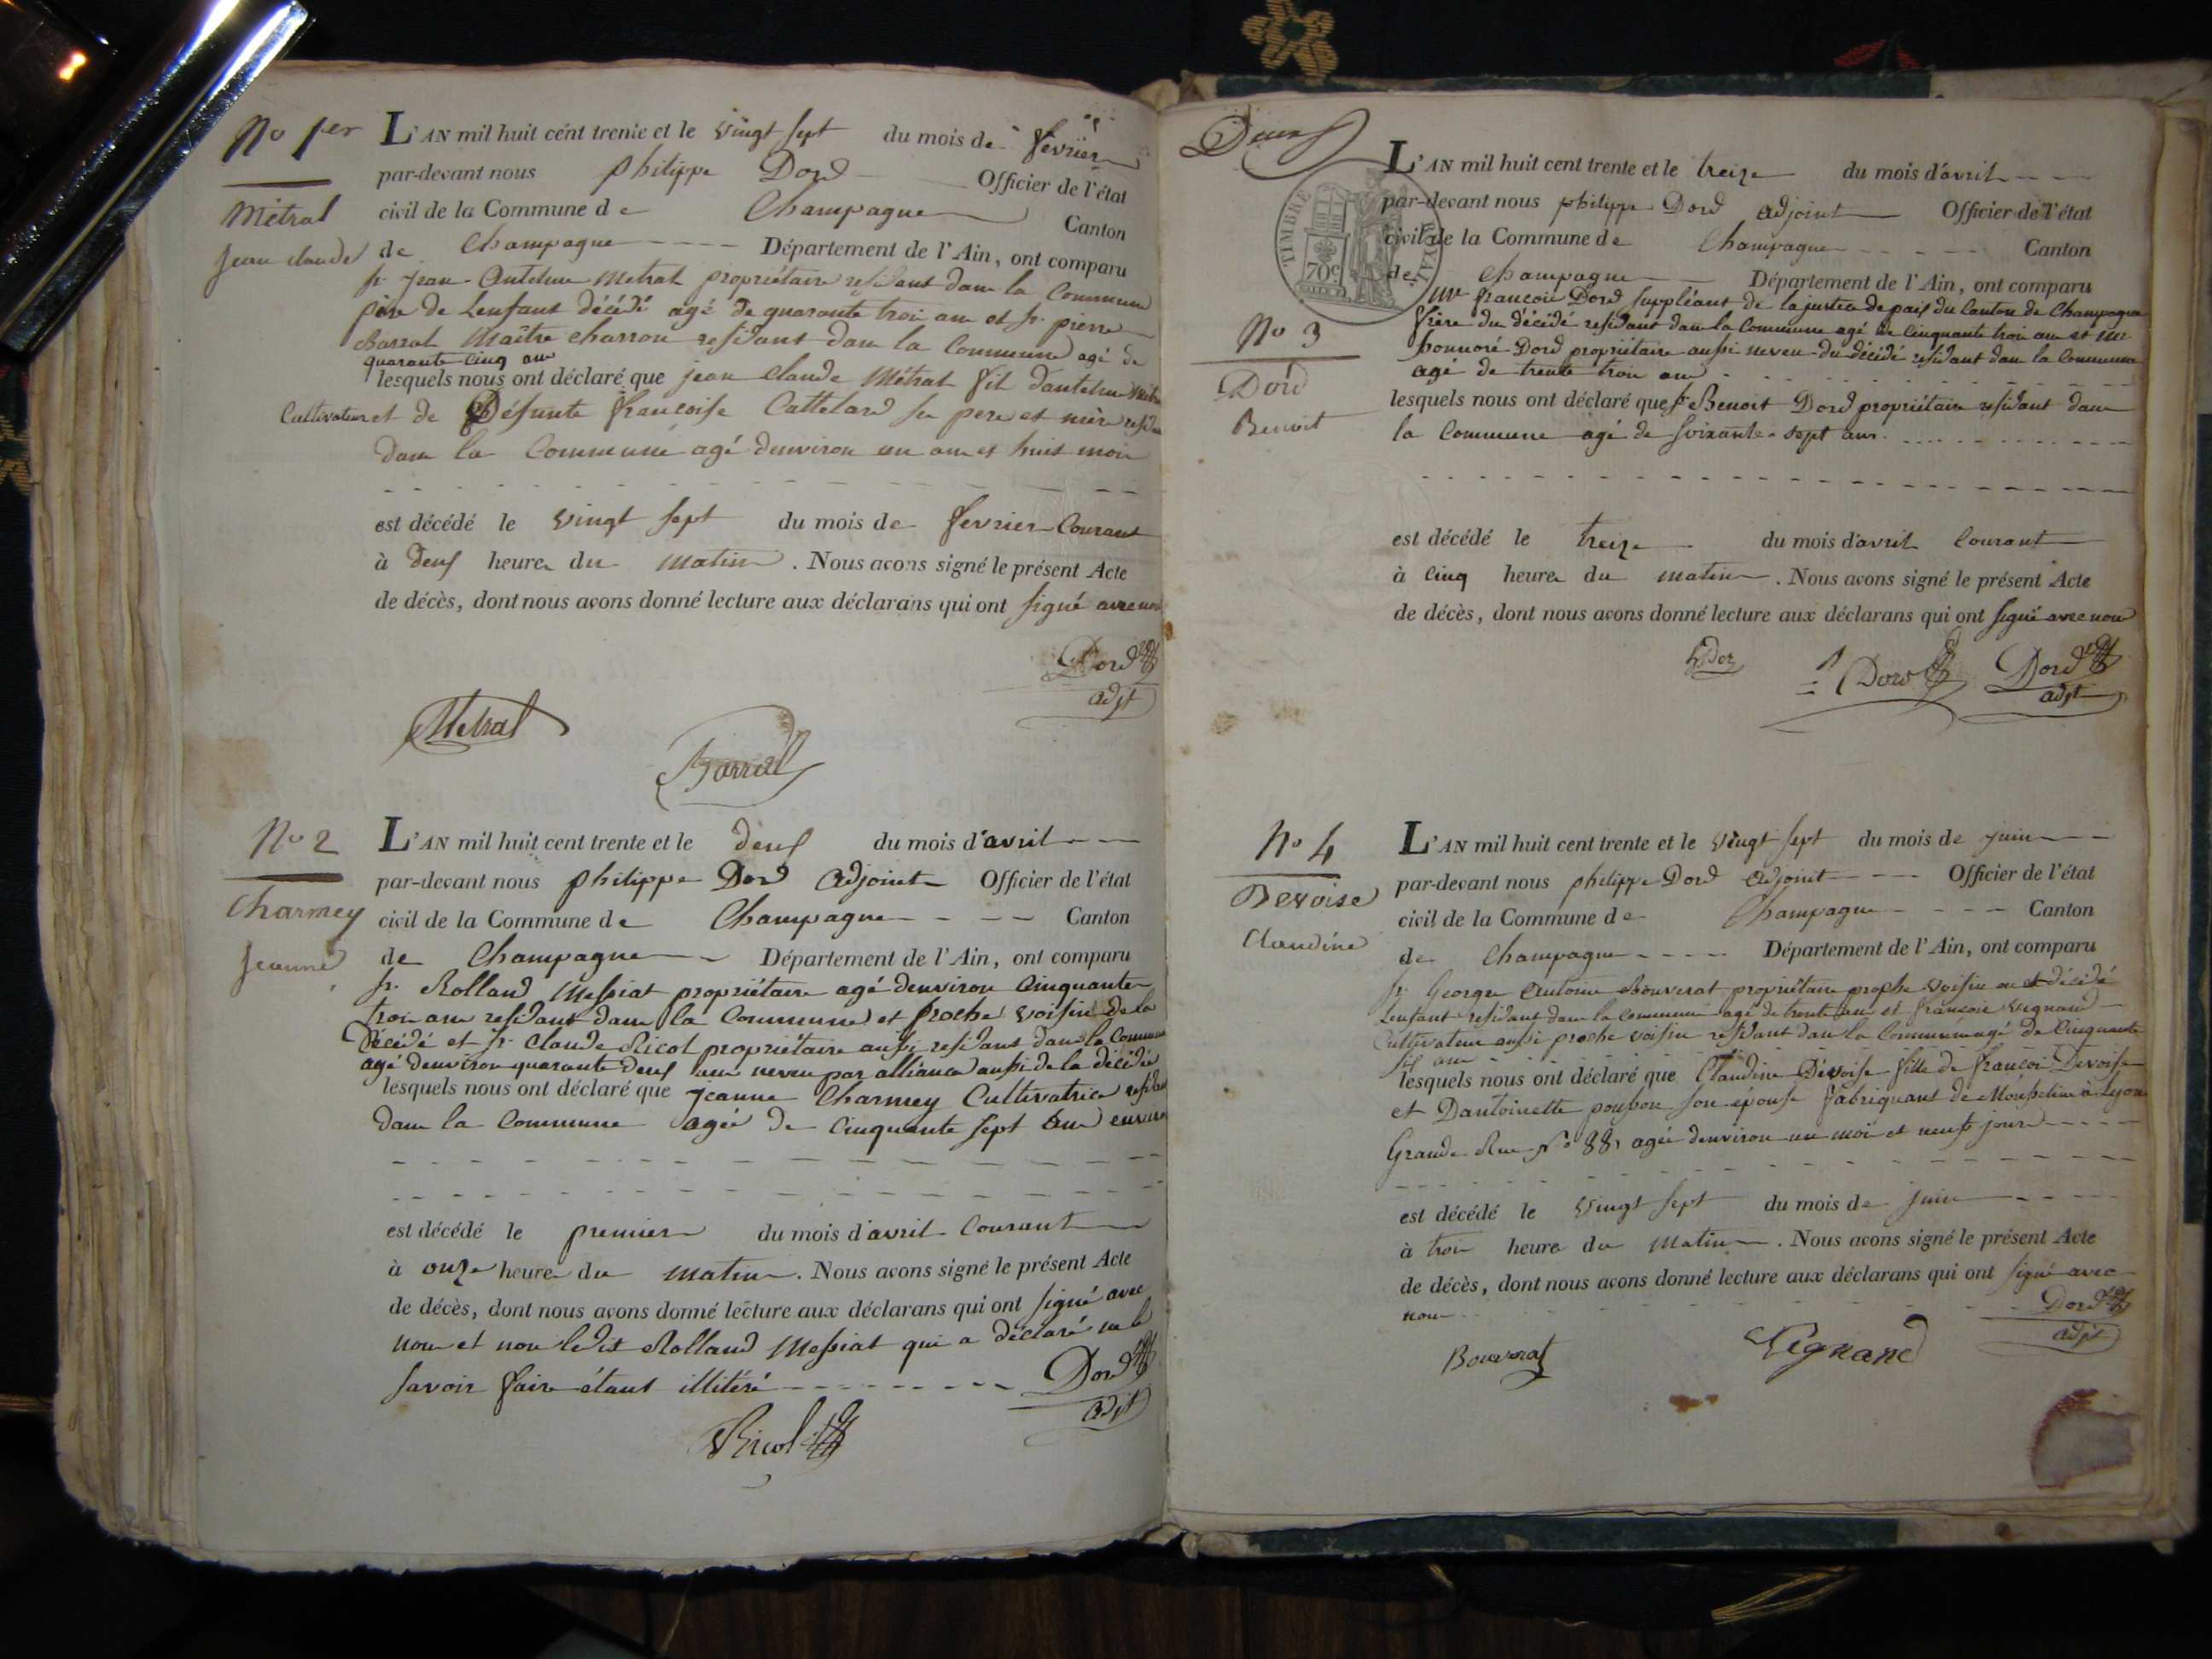 No 1er
Métral
Jean Claude
L'AN mil huit cent trente et le vingt sept du mois de février
par-devant nous philippe Dord Officier de l'état
civil de la Commune de Champagne Canton
de Champagne Département de l'Ain, ont comparu
sr. Jean Antelme Metral propriétaire residant dans la Commune
père de Lenfant décédé agé de quarante trois ans et sr. pierre
Barral Maître charron residant dans la Commune agé de
quarante cinq ans
lesquels nous ont déclaré que jean Claude Métral fils d'antelme Métral
Cultivateur et de Défunte francoise Cattelard ses pere et mère resid
dans la Commune agé denviron un an et huit mois
est décédé le vingt sept du mois de fevrier Courant
à deux heures du matin. Nous avons signé le présent Acte
de décès, dont nous avons donné lecture aux déclarans qui ont signé avec nous
Dord
adjt
Metral
Barral
No 2
Charmey
Jeanne
L'AN mil huit cent trente et le deux du mois d'avril
par-devant nous philippe Dord adjoint Officier de l'état
civil de la Commune de Champagne Canton
de Champagne Département de l'Ain, ont comparu
sr. Rolland Messiat propriétaire agé denviron Cinquante
trois ans residant dans la Commune et proche voisin de la
Décédé et sr. Claude Ricol propriétaire aussi residant dans la Commune
agé denviron quarante deux ans neveu par alliance aussi de la décédée
lesquels nous ont déclaré que jeanne Charmey Cultivatrice resida
dans la Commune agée de Cinquante sept ans environ
est décédé le premier du mois d'avril Courant
à onze heures du matin. Nous avons signé le présent Acte
de décès, dont nous avons donné lecture aux déclarans qui ont signé avec
nous et non ledit Rolland Messiat qui a déclaré ne le
savoir faire étant illitéré
Dord
adjt
Ricol
TIMBRE ROYAL
70c
No 3
Dord
Benoit
L'AN mil huit cent trente et le treize du mois d'avril
par-devant nous philippe Dord adjoint Officier de l'état
civil de la Commune de Champagne Canton
de Champagne Département de l'Ain, ont comparu
Mr francois Dord suppléant de la justice de paix du Canton de Champagne
frère du décédé residant dans la Commune agé de Cinquante trois ans et Mr
honnoré Dord propriétaire aussi neveu du décédé residant dans la Commune
agé de trente trois ans
lesquels nous ont déclaré que sr Benoit Dord propriétaire residant dans
la Commune agé de soixante-sept ans
est décédé le treize du mois d'avril Courant
à Cinq heures du matin. Nous avons signé le présent Acte
de décès, dont nous avons donné lecture aux déclarans qui ont signé avec nous
Dord
Dord
adjt
No 4
Devoise
Claudine
L'AN mil huit cent trente et le vingt sept du mois de juin
par-devant nous philippe Dord adjoint Officier de l'état
civil de la Commune de Champagne Canton
de Champagne Département de l'Ain, ont comparu
sr. George Antoine Bouverat propriétaire proche voisin ou est décédé
Lenfant residant dans la Commune agé de trente ans et francois vignand
Cultivateur aussi proche voisin residant dans la Commune agé de Cinquante
six ans
lesquels nous ont déclaré que Claudine Devoise fille de francois Devoise
et Dantoinette poupon son épouse fabriquant de Mousseline à Lyon
Grande Rue No 88, agée denviron un mois et neuf jours
est décédé le vingt sept du mois de juin
à trois heures du matin. Nous avons signé le présent Acte
de décès, dont nous avons donné lecture aux déclarans qui ont signé avec
nous
Dord
adjt
Bouverat
Vignand